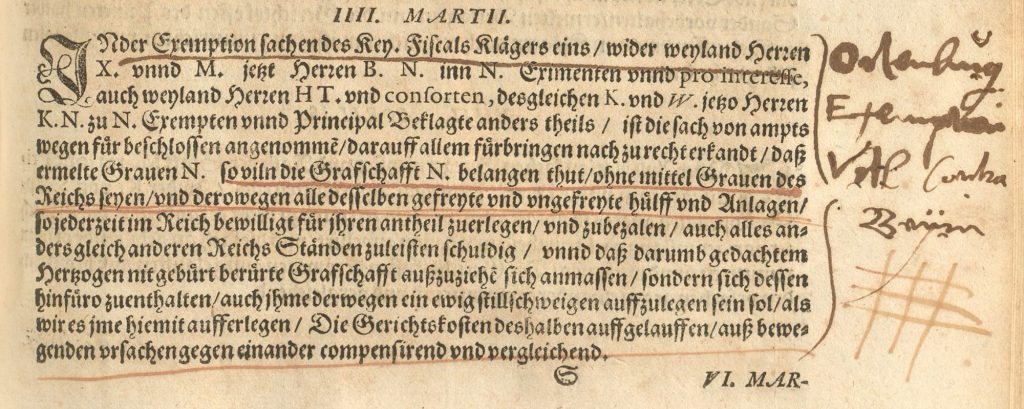 IIII. MARTII.
INder Exemption sachen des Key. Fiscals Klägers eins / wider weyland Herren
X. vnnd M. jetzt Herren B. N. inn N. Eximenten vnnd pro interesse,
auch weyland Herren HT. vnd consorten, desgleichen K. vnd W. jetzo Herren
K. N. zu N. Exempten vnnd Principal Beklagte anders theils / ist die sach von ampts
wegen für beschlossen angenommẽ / darauff allem fürbringen nach zu recht erkandt / daß
ermelte Grauen N. so viln die Grafschafft N. belangen thut / ohne mittel Grauen des
Reichs seyen / vnd derowegen alle desselben gefreyte vnd vngefreyte hülff vnd Anlagen /
so jederzeit im Reich bewilligt für jhren antheil zuerlegen / vnd zubezalen / auch alles an-
ders gleich anderen Reichs Ständen zuleisten schuldig / vnnd daß darumb gedachtem
Hertzogen nit gebürt berürte Grafschafft außzuziehẽ sich anmassen / sondern sich dessen
hinfüro zuenthalten / auch jhme derwegen ein ewig stillschweigen auffzulegen sein sol / als
wir es jme hiemit aufferlegen / Die Gerichtskosten deshalben auffgelauffen / auß bewe-
genden vrsachen gegen einander compensirend vnd vergleichend.
S VI. MAR-
Ortenburg
Exemption
Contra
Bayrn